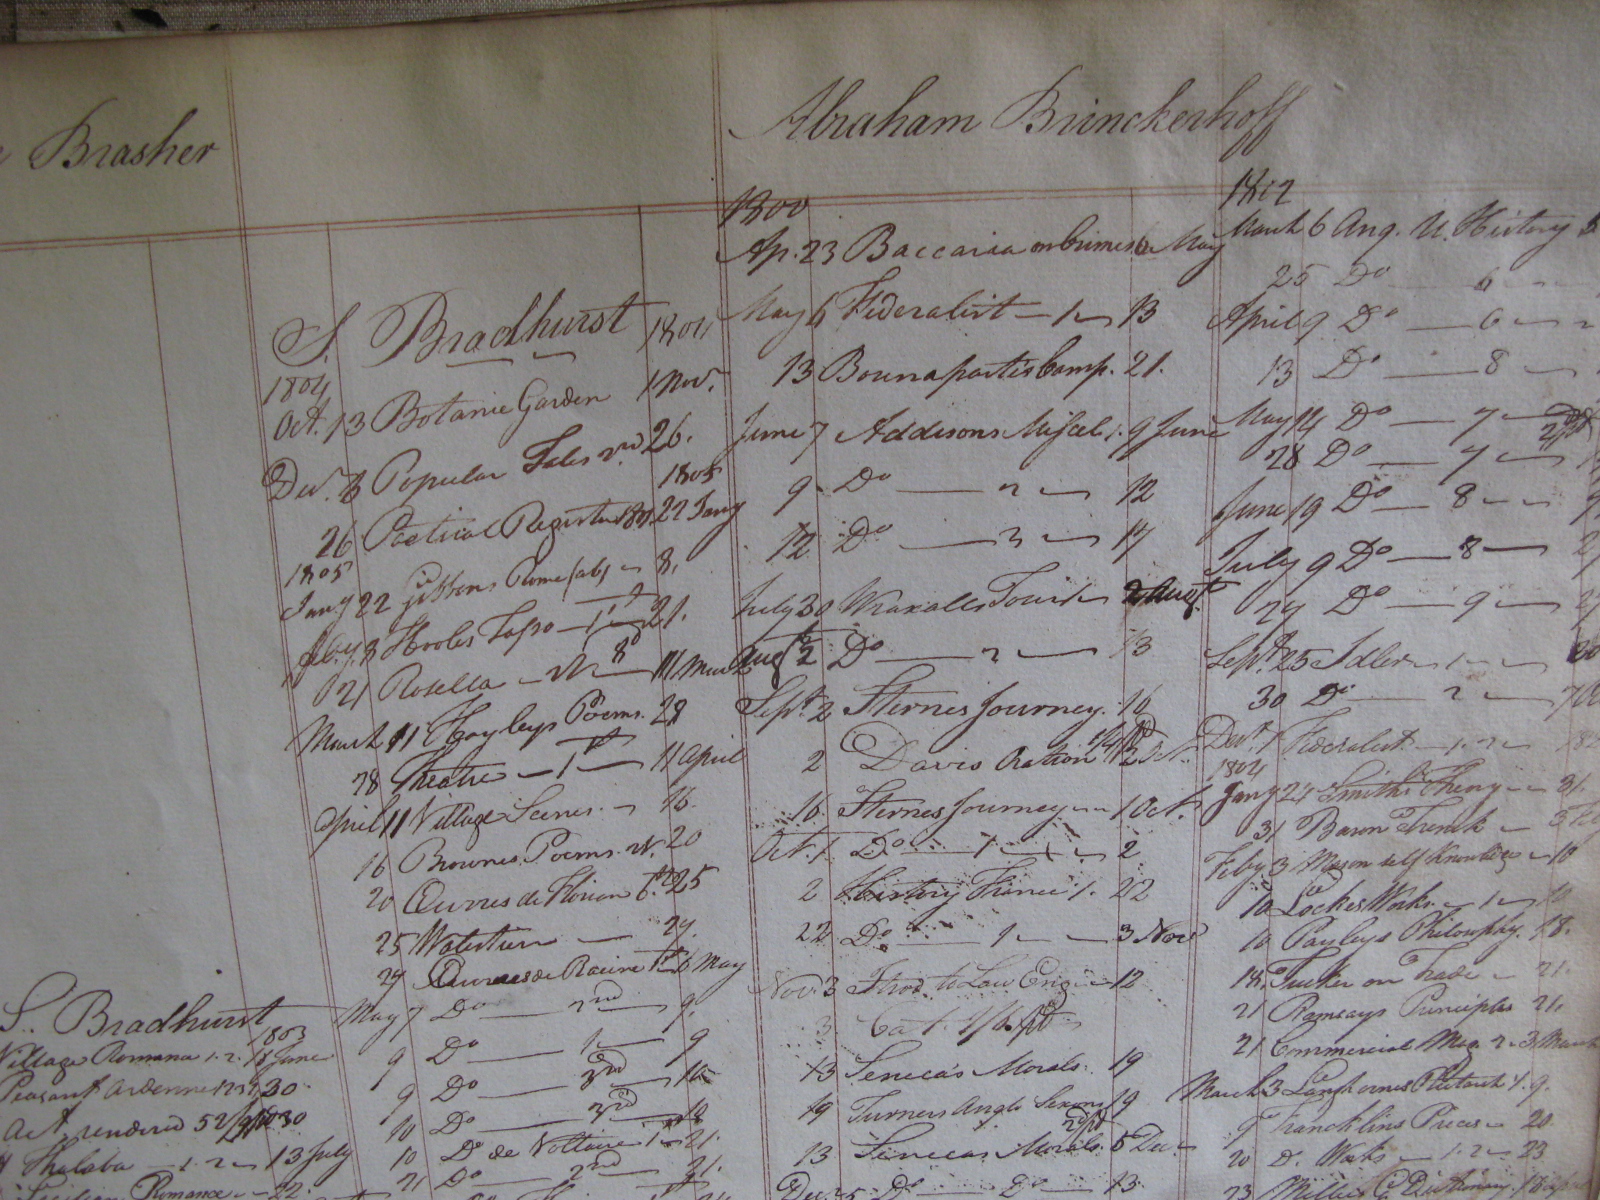 Brasher
S. Bradhurst
1803
Village Romana 1. 2. 18 June
Peasant Ardenne 30
act. rendered
Thalaba - 1. 2 - 13 July
Sicilian Romance - 22
S. Bradhurst 1804
1804
Oct. 13 Botanic Garden 1 Nov.
Decr. 8 Popular Tales 26.
1805
26 Poetical Register 22 Jany
1805
Jany 22 Gibbons Rome (ab) - 8.
Feby. 8 Hooles Tasso - 1st 21.
21 Rosella 11 March
March 11 Hayleys Poems. 28
28 Theatre - 1st 11 April
April 11 Village Scenes - 16.
16 Brownes Poems. 20
20 Œuvres de Florian 25
25 29.
29 Œuvres de Racine 1st 6 May
May 7 Do 2nd 9.
9 Do 1 9
9 Do 3rd 10
10 Do 3rd 18
10 Do de Voltaire 1st 21.
21 Do 2nd 21.
Abraham Brinckerhoff
1800
Ap. 23 Baccaria on Crimes 6 May
May 6 Federalist - 1 - 13
13 Bounapartis Camp. 21.
June 7 Addisons Miscel. 1. 9 June
9 Do 2 - 12
12 Do 3 - 17
July 30 Wraxalls Tour 1 - 2 Augt.
Augt 2 Do 2 - 13
Sept. 2 Sternes Journey. 16
2 Davis Oration 2 Oct.
16 Sternes Journey - 1 Oct.
Oct. 1 Do 1 - 2
2 History France 1. 22
22 Do 1 - 3 Nov
Nov. 3 Introd to Law Eng - 12
3 Cat.
13 Seneca's Morals. 19
19 Turners Anglo Saxons 19
13 Senecas Morals. 5 Dec
Dec 5 Do Do 13.
1802
March 6 Anc. U. History 5
25 Do 6 -
April 9 Do 6 -
13 Do 8 -
May 14 Do 7 -
28 Do 7 -
June 19 Do 8 -
July 9 Do 8 -
29 Do 9 -
Sept. 25 Idler - 1 -
30 Do 2 -
Decr. 1 Federalist - 1. 2 -
1804
Jany 24 Smiths Theory - 31.
31 Baron Trenck - 3 Feb
Feby 3 Mason self Knowledge - 10
10 Lockes Works. - 1 - 10
10 Payleys Philosophy. 18.
18. Tucker on Trade - 21.
21 Ramsays Principles 21.
21 Commercial Mag. 2 - 3 March
March 3 Langhornes Plutarch 1. 9.
9 Francklins Pieces - 20
20 Do. Works - 1. 2 - 23
23 Dictionary